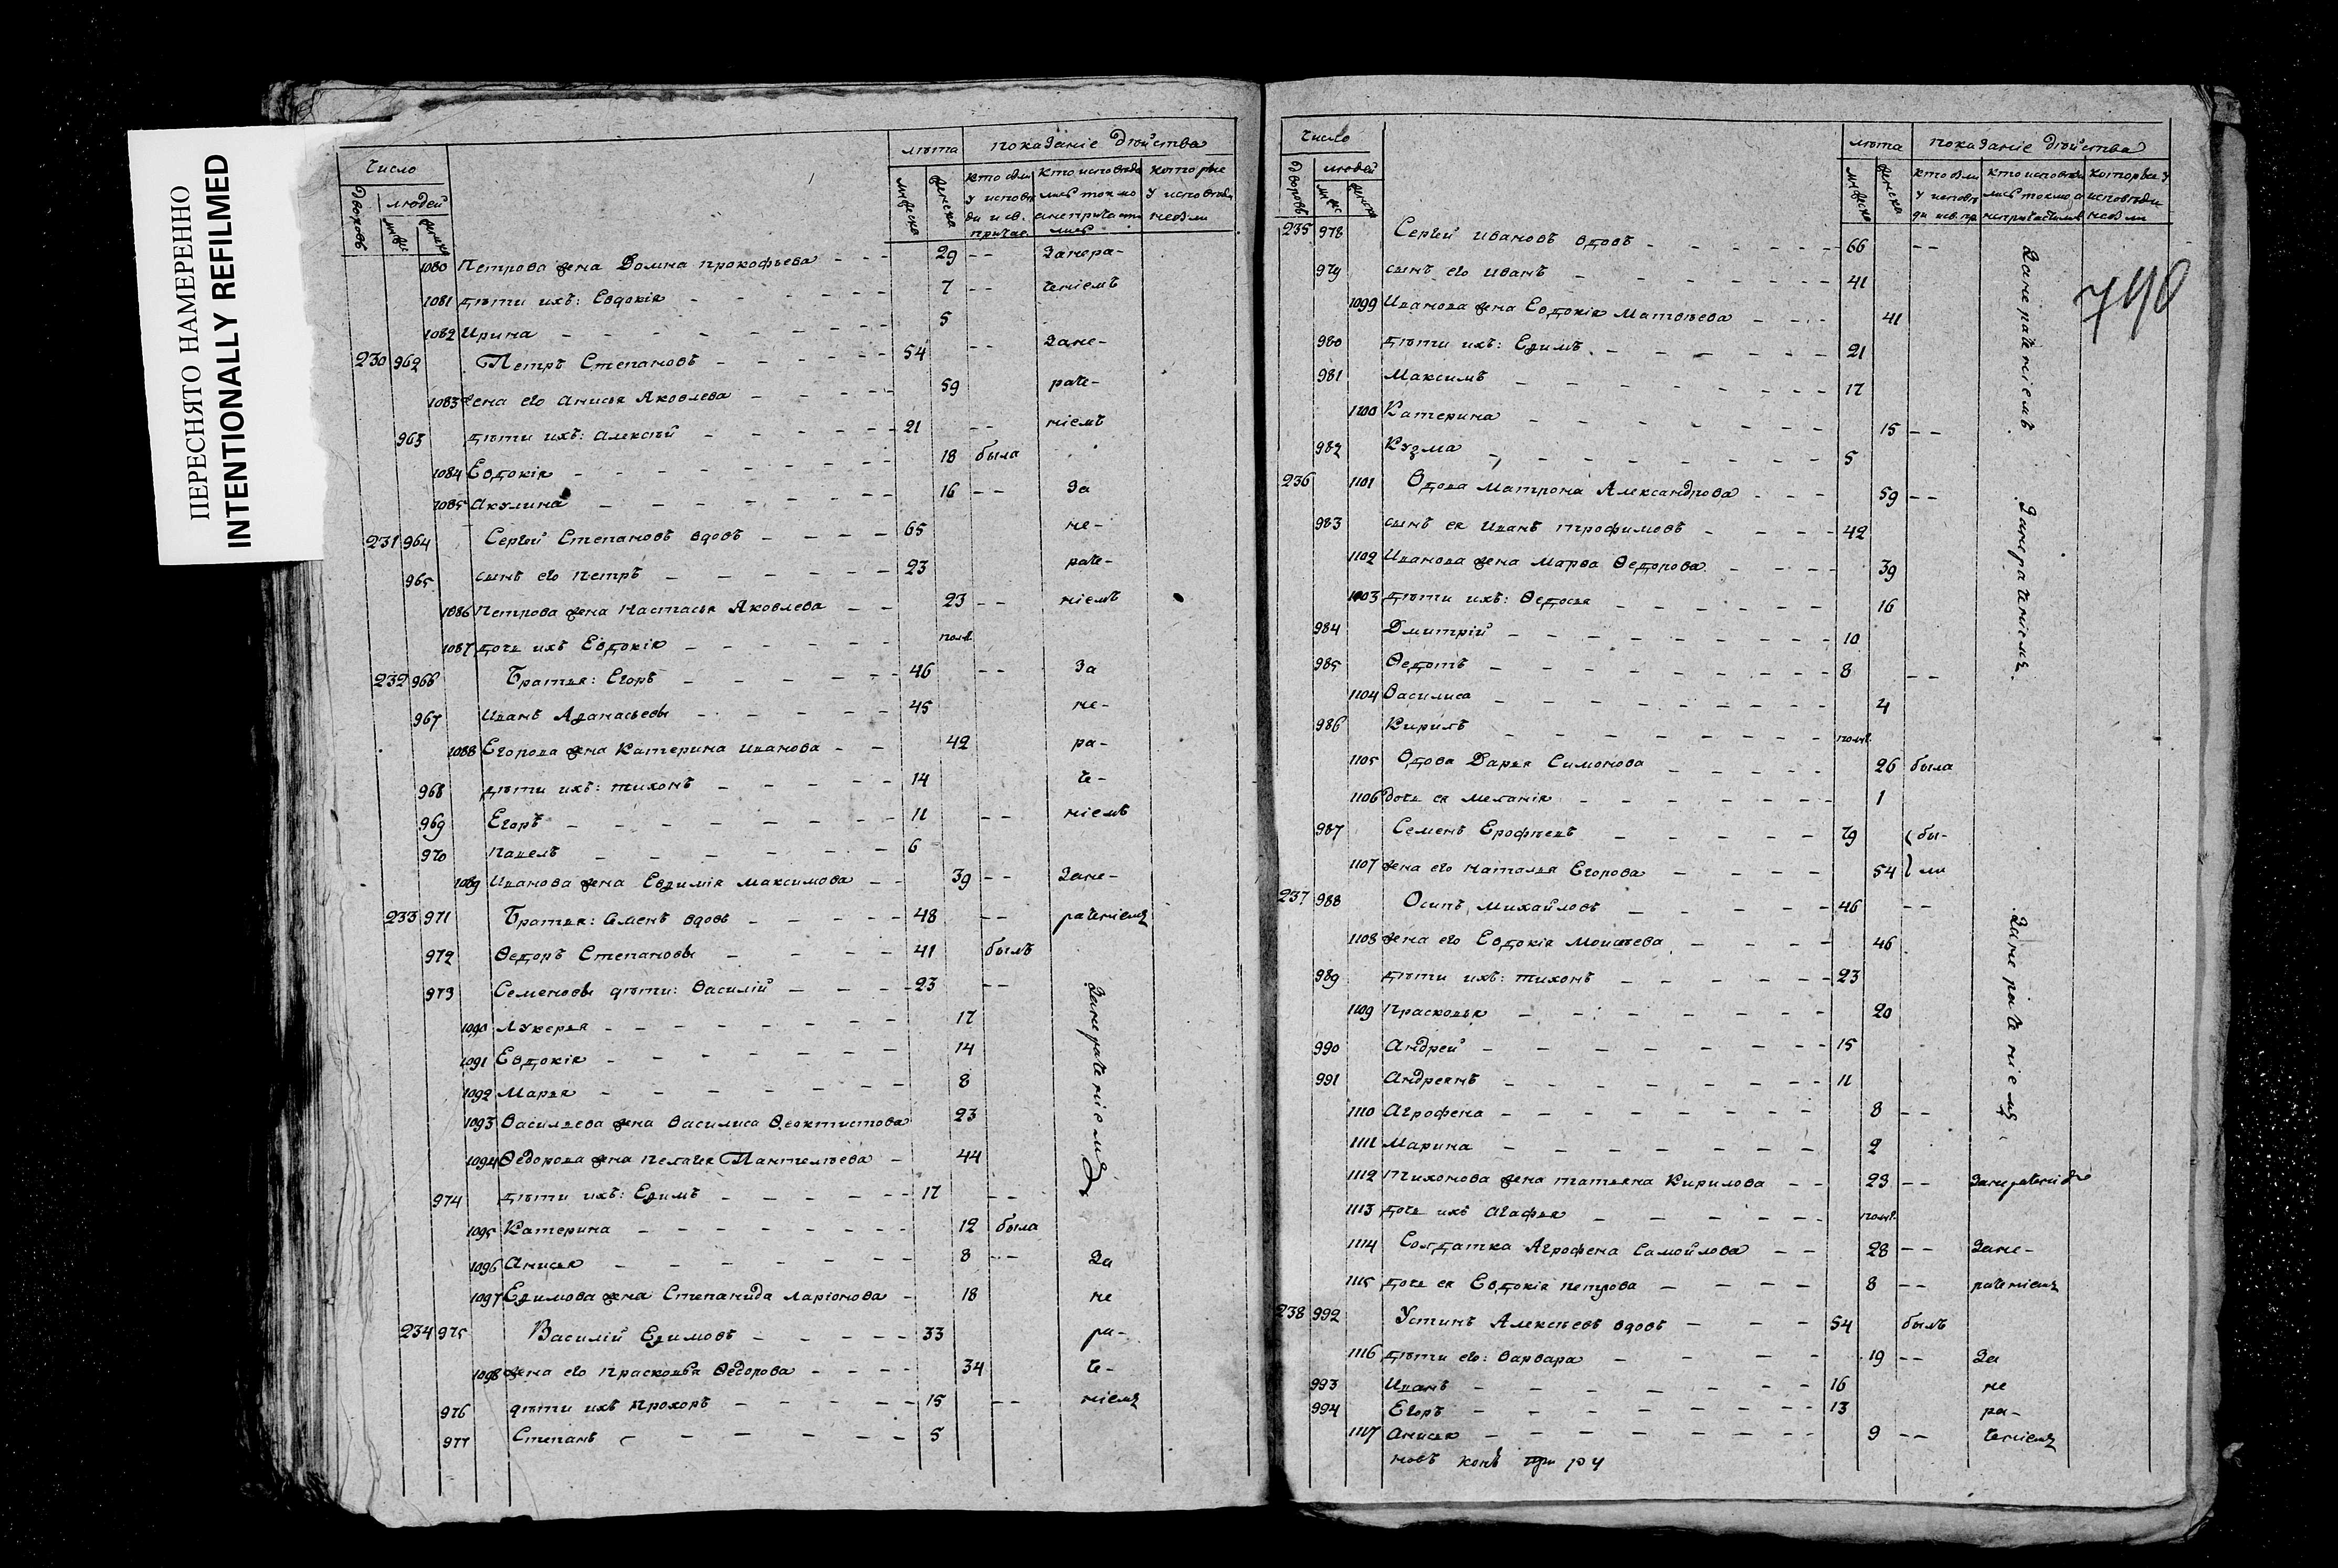 ПЕРЕСНЯТО НАМЕРЕННО
INTENTIONALLY REFILMED
Число
лѣта
показаніе дѣйства
дворовъ
людей
муж
женска
мужеска
женска
кто были у исповѣди и св. причас.
кто исповѣдались токмо а не причастились
которые у исповѣди небыли
1080 Петрова жена Домна прокофьева 29 Занера-
1081 дѣти ихъ: Евдокія 7 ченіемъ
1082 Ирина 5
230 962 Петръ Степановъ 54 Зане-
1083 жена его анисья Яковлева 59 раче-
963 дѣти ихъ: алексѣй 21 ніемъ
1084 Евдокія 18 была
1085 акулина 16 За
231 964 Сергѣй Степановъ вдовъ 65 не-
965 сынъ его петръ 23 раче-
1086 петрова жена настасья Яковлева 23 ніемъ
1087 дочь ихъ Евдокія полг.
232 966 Братья: Егоръ 46 За
967 Иванъ Аѳанасьевы 45 не-
1088 Егорова жена Катерина иванова 42 ра-
968 дѣти ихъ: тихонъ 14 че-
969 Егоръ 11 ніемъ
970 павелъ 6
1089 Иванова жена Евѳимія максимова 39 Зане-
233 971 Братья: Семенъ вдовъ 48 раченіемъ
972 Ѳедоръ Степановы 41 былъ
973 Семеновы дѣти: Василій 23
Занераченіемъ
1090 Лукерья 17
1091 Евдокія 14
1092 Марья 8
1093 Васильева жена Василиса Ѳеоктистова 23
1094 Ѳедорова жена пелагея Пантелѣева 44
974 дѣти ихъ: Еѳимъ 17
1095 Катерина 12 была
1096 Анисья 8 За
1097 Еѳимова жена Степанида ларіонова 18 не
234 975 Василій Еѳимовъ 33 ра-
1098 жена его прасковья Ѳедорова 34 че-
976 дѣти ихъ прохоръ 15 ніемъ
977 Степанъ 5
Число
лѣта
показаніе дѣйства
дворовъ
людей
муж
женска
мужеска
женска
кто были у исповѣди и св. пр
кто исповѣдались токмо а непричастились
которые у исповѣди небыли
740
235 978 Сергѣй ивановъ вдовъ 66
Занераченіемъ
979 сынъ его иванъ 41
1099 Иванова жена Евдокія Матвѣева 41
980 дѣти ихъ: Еѳимъ 21
981 Максимъ 17
1100 Катерина 15
982 Кузма 5
236 1101 Вдова матрона Александрова 59
Занераченіемъ
983 сынъ ея иванъ трофимовъ 42
1102 Иванова жена марѳа Ѳедорова 39
1103 дѣти ихъ: Ѳедосья 16
984 Дмитрій 10
985 Ѳедотъ 8
1104 Василиса 4
986 Кирилъ полг.
1105 Вдова Дарья Симонова 26 была
1106 дочь ея меланія 1
987 Семенъ Ерофѣевъ 79 бы-
1107 жена его наталья Егорова 54 ли
237 988 Осипъ Михайловъ 46
Занераченіемъ
1108 жена его Евдокія моисѣева 46
989 дѣти ихъ: тихонъ 23
1109 прасковья 20
990 Андрей 15
991 Андреянъ 11
1110 агрофена 8
1111 марина 2
1112 тихонова жена татьяна Кирилова 23 Занераченіемъ
1113 дочь ихъ агафья полг.
1114 Солдатка Агрофена Самойлова 28 Зане-
1115 дочь ея Евдокія петрова 8 раченіемъ
238 992 Устинъ Алексѣевъ вдовъ 54 былъ
1116 дѣти его: варвара 19 За
993 Иванъ 16 не
994 Егоръ 13 ра-
1117 анисья 9 ченіемъ